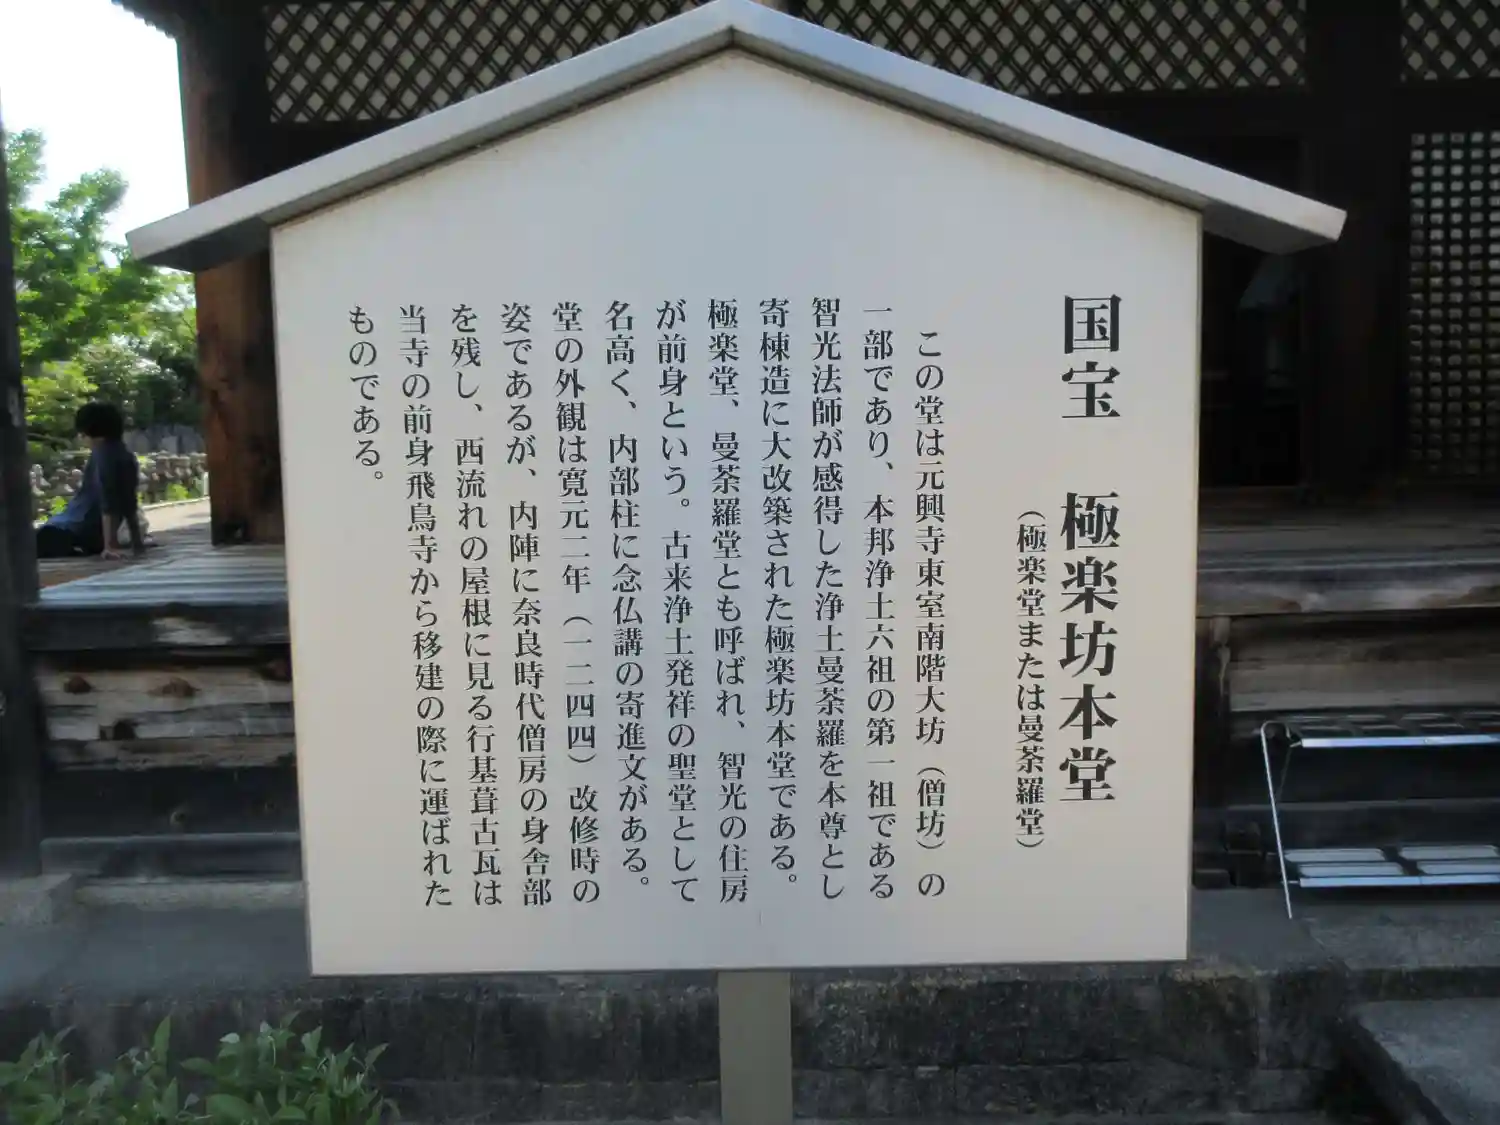 国宝　極楽坊本堂
（極楽堂または曼荼羅堂）
この堂は元興寺東室南階大坊（僧坊）の
一部であり、本邦浄土六祖の第一祖である
智光法師が感得した浄土曼荼羅を本尊とし
寄棟造に大改築された極楽坊本堂である。
極楽堂、曼荼羅堂とも呼ばれ、智光の住房
が前身という。古来浄土発祥の聖堂として
名高く、内部柱に念仏講の寄進文がある。
堂の外観は寛元二年（一二四四）改修時の
姿であるが、内陣に奈良時代僧房の身舎部
を残し、西流れの屋根に見る行基葺古瓦は
当寺の前身飛鳥寺から移建の際に運ばれた
ものである。